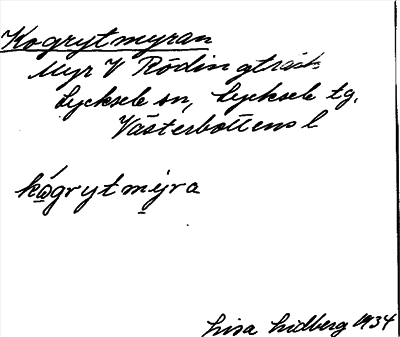 Kogrytmyran
Myr V Rödingträsk
Lycksele sn, Lycksele tg.
Västerbottens l
kώgrytmýra
Lisa Lidberg 1934